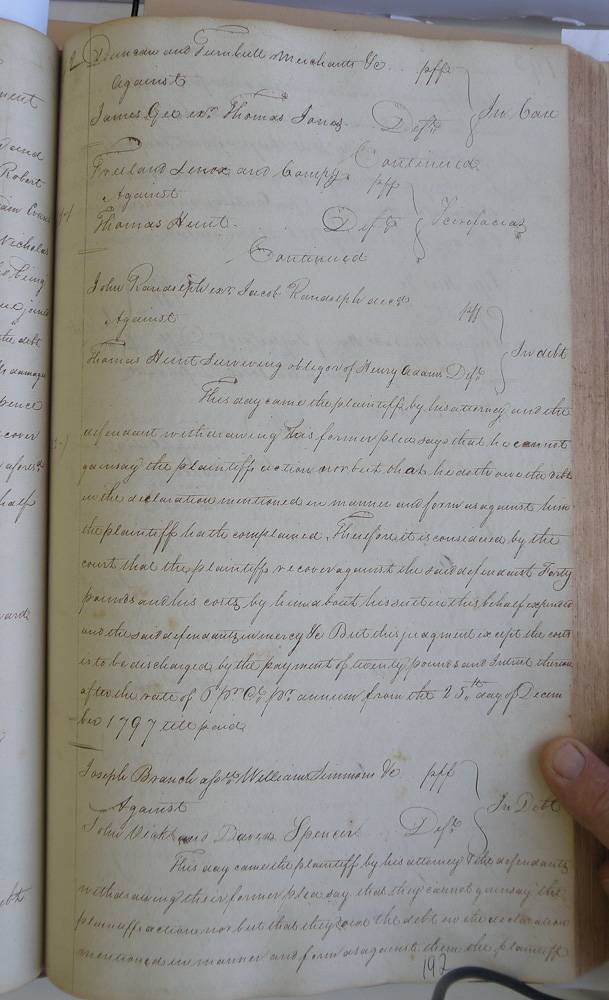 Duncan and Turnbull Merchants &c pff
Against
James Gee exr Thomas Jones Deft In Case
Continued
Freeland Lenox and Compy pff
Against
Thomas Hunt Deft Scirefacias
Continued
John Randolph exr Jacob Randolph decd
pff
Against
In debt
Thomas Hunt Surviving obligor of Henry Adams Deft
This day came the plaintiff by his attorney and the
defendant withdrawing his former plea says that he cannot
gainsay the plaintiffs action nor but that he doth owe the debt
in the declaration mentioned in manner and form as against him
the plaintiff hath complained. Therefore it is considered by the
court that the plaintiffs recover against the said defendant Forty
pounds and his costs by him about his suit in this behalf expended
and the said defendants in mercy &c But this judgment except the costs
is to be discharged by the payment of twenty pounds and Intrest thereon
after the rate of 6 pr Ct pr annum from the 25th day of Decem
ber 1797 till paid
Joseph Branch assee William Simmons &c pff
Against In Debt
John and Spencer Deft
This day came the plaintiff by his attorney & the defendants
withdrawing their former plea say that they cannot gainsay the
plaintiffs action nor but that they owe the debt in the declaration
mentioned in manner and form as against them the plaintiff
192